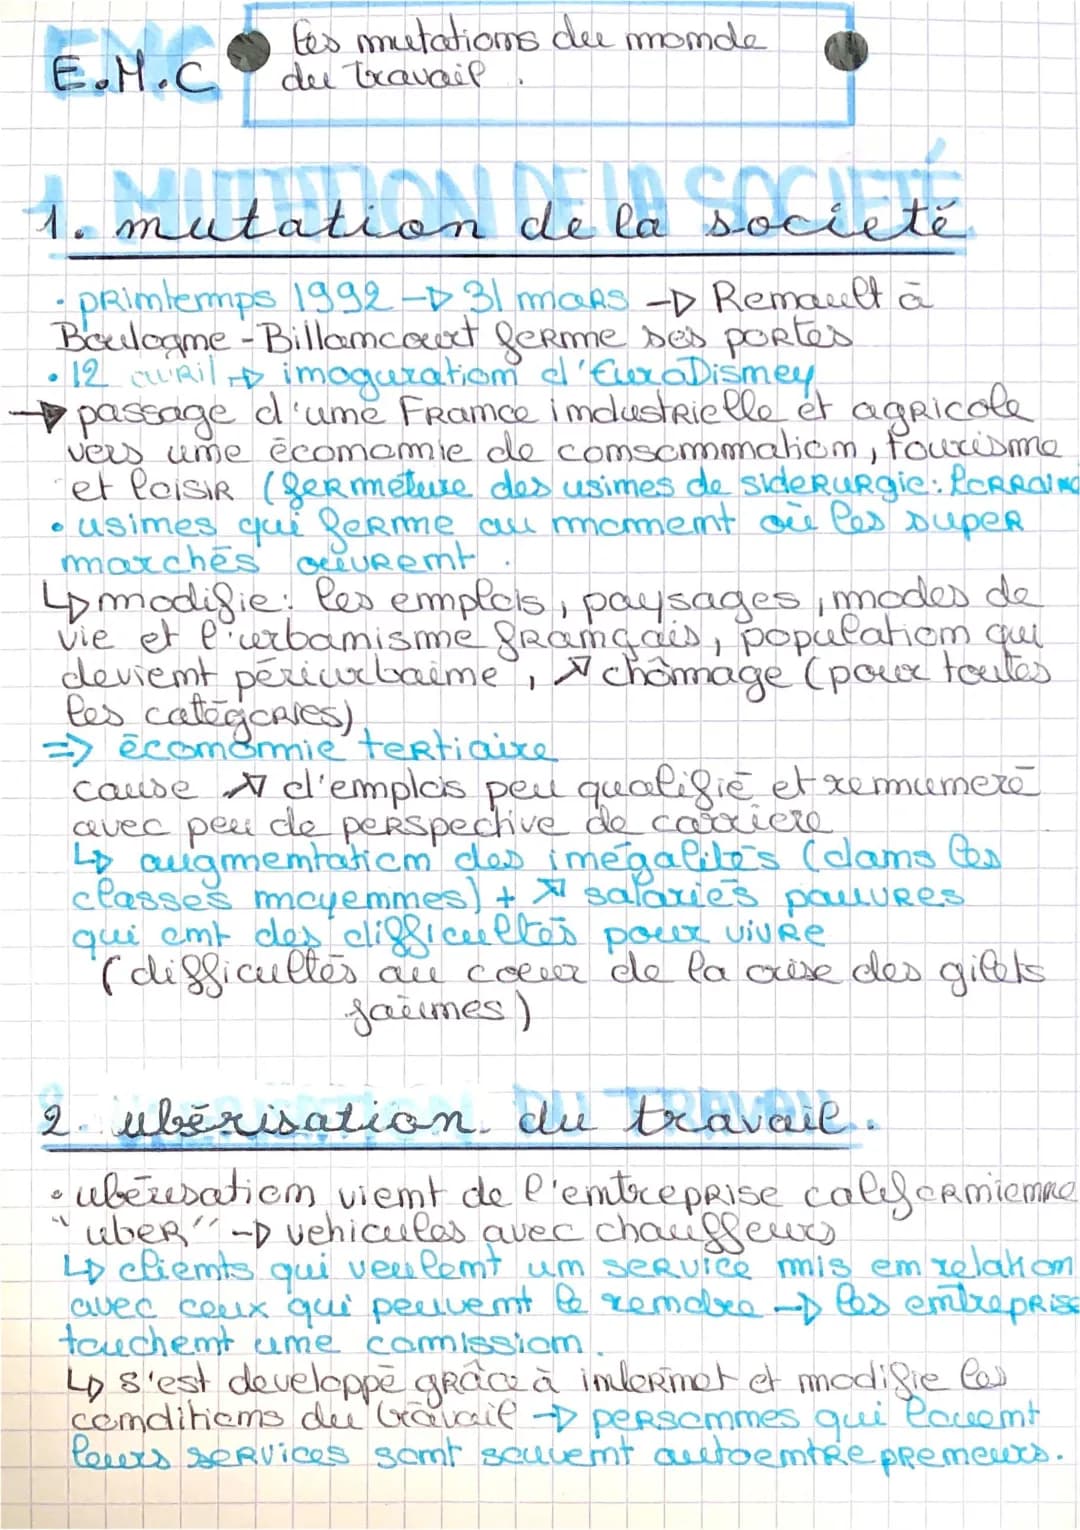 EMC
E.M.C
Les mutations du monde
du travail.
1. MUTATION DE LA SOCIETÉ
1. mutation de la societé
• printemps 1992 → 31 mars → Renault à
Boulogne-Billancourt ferme ses portes
• 12 avril → inoguration d'EuroDisney
→ passage d'une France industrielle et agricole
vers une économie de consommation, tourisme
et loisir (fermeture des usines de siderurgie: Lorraine
• usines qui ferme au moment où les super
marchés ouvrent.
↳ modifie: les emplois, paysages, modes de
vie et l'urbanisme français, population qui
devient périurbaine, ↗ chômage (pour toutes
les catégories)
=> économie tertiaire
cause ↗ d'emplois peu qualifié et remuneré
avec peu de perspective de carriere
↳ augmentation des inégalités (dans les
classes moyennes) + ↗ salariés pauvres
qui ont des difficultés pour vivre
(difficultés au coeur de la crise des gilets
jaunes)
2. ubérisation du travail.
• ubérisation vient de l'entreprise californienne
"uber" → vehicules avec chauffeurs
↳ clients qui veulent un service mis en relation
avec ceux qui peuvent le rendre → les entreprise
touchent une comission.
↳ s'est developpé grâce à internet et modifie les
conditions du travail → personnes qui louent
leurs services sont souvent autoentrepreneurs.